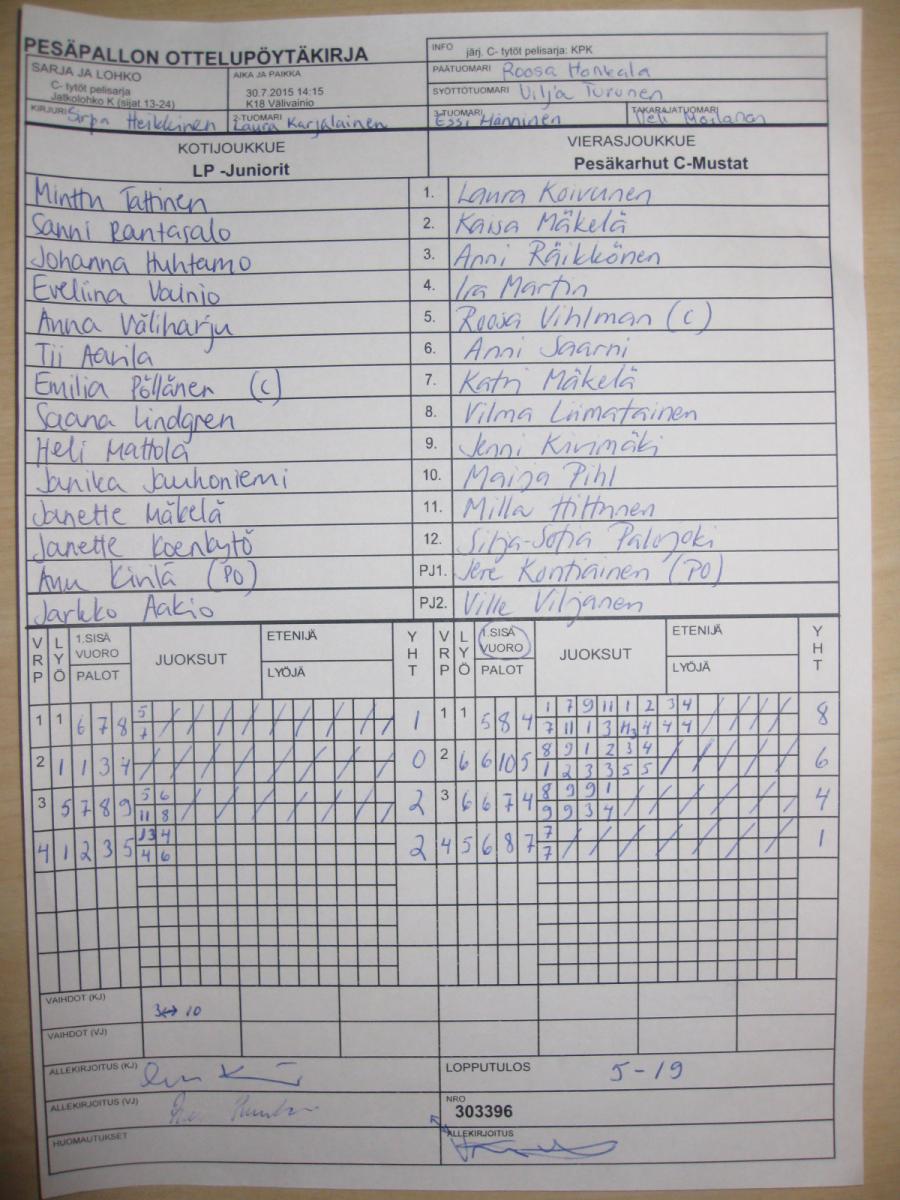 PESÄPALLON OTTELUPÖYTÄKIRJA
INFO järj. C- tytöt pelisarja: KPK
PÄÄTUOMARI Roosa Honkala
SYÖTTÖTUOMARI Vilja Turunen
SARJA JA LOHKO
C- tytöt pelisarja
Jatkolohko K (sijat 13-24)
AIKA JA PAIKKA
30.7.2015 14:15
K18 Välivainio
KIRJURI Sirpa Heikkinen
2-TUOMARI Laura Karjalainen
3-TUOMARI Essi Hänninen
TAKARAJATUOMARI Veli Moilanen
KOTIJOUKKUE
LP -Juniorit
VIERASJOUKKUE
Pesäkarhut C-Mustat
Minttu Tattinen 1. Laura Koivunen
Sanni Rantasalo 2. Kaisa Mäkelä
Johanna Huhtamo 3. Anni Räikkönen
Eveliina Vainio 4. Ira Martin
Anna Väliharju 5. Roosa Vihlman (C)
Tii Aarila 6. Anni Saarni
Emilia Pöllänen (C) 7. Katri Mäkelä
Saana Lindgren 8. Vilma Liimatainen
Heli Mattola 9. Jenni Kivimäki
Janika Jauhoniemi 10. Maija Pihl
Janette Mäkelä 11. Milla Hiltunen
Janette Koenkytö 12. Silja-Sofia Palojoki
Anu (PO) PJ1. Jere Kontiainen (PO)
Jarkko Aakio PJ2. Ville Viljanen
VRP LYÖ 1.SISÄ VUORO PALOT JUOKSUT ETENIJÄ LYÖJÄ YHT VRP LYÖ 1.SISÄ VUORO PALOT JUOKSUT ETENIJÄ LYÖJÄ YHT
5 1 7 9 11 1 2 3 4
1 1 6 7 8 1 1 1 5 8 4 8
7 7 11 1 3 4 4 4
8 9 1 2 3 4
2 1 1 3 4 0 2 6 6 10 5 6
1 2 3 3 5 5
5 6 8 9 9 1
3 5 7 8 9 2 3 6 6 7 4 4
11 8 9 9 3 4
13 4 7
4 1 2 3 5 2 4 5 6 8 7 1
4 6 7
VAIHDOT (KJ) 3↔10
VAIHDOT (VJ)
ALLEKIRJOITUS (KJ)
LOPPUTULOS 5-19
ALLEKIRJOITUS (VJ)
NRO
303396
HUOMAUTUKSET
ALLEKIRJOITUS